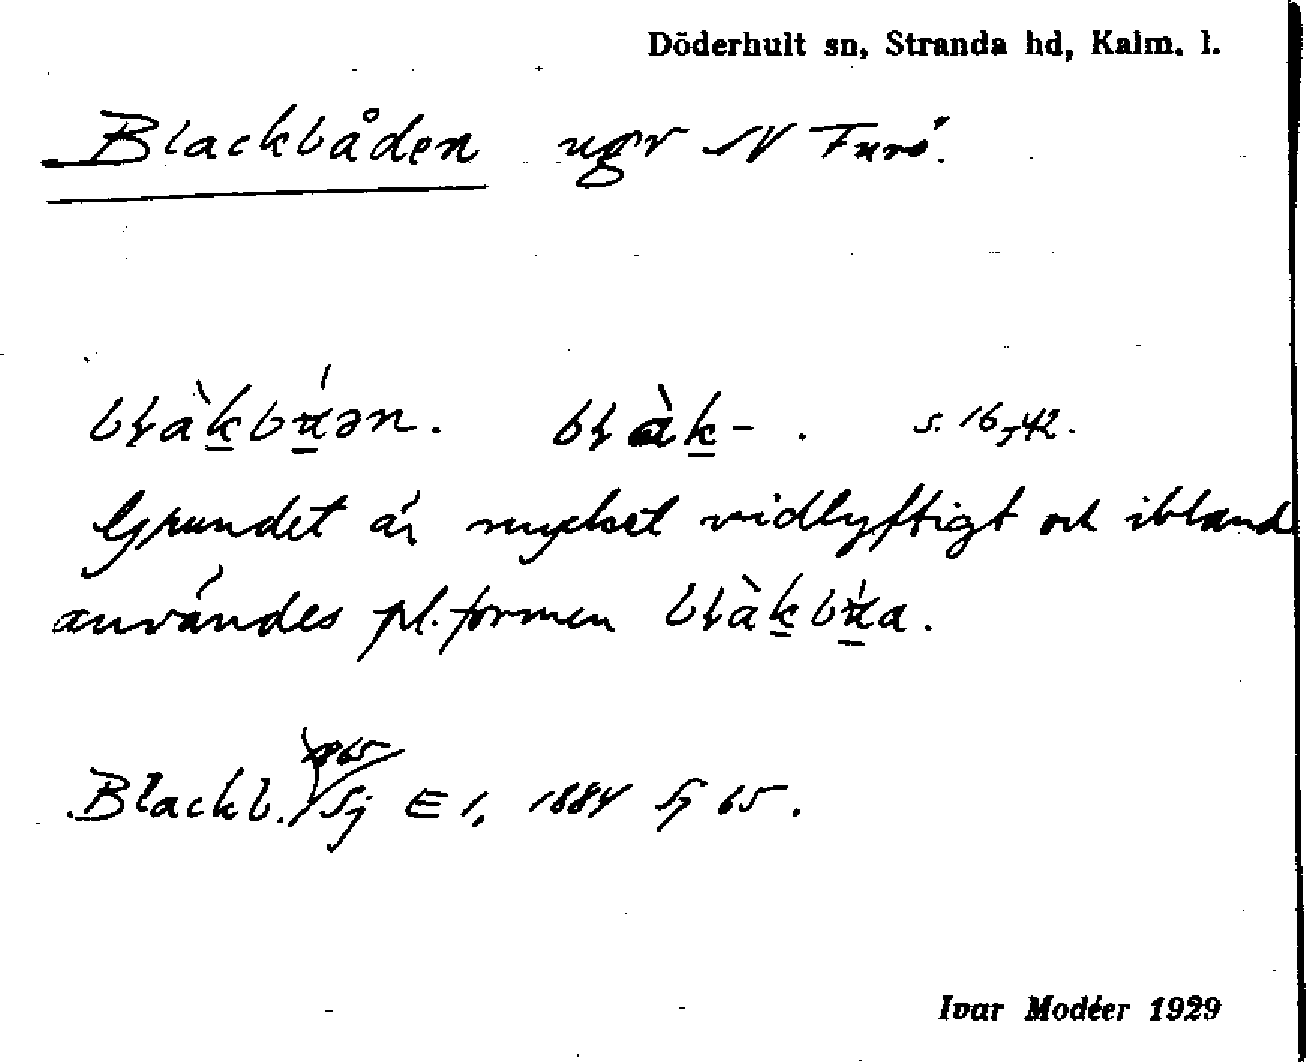 Döderhult sn, Stranda hd, Kalm. l.
Blackbåden ugr N Furö.
s. 16, 42.
Grundet är mycket vidlyftigt och ibland
användes pl.formen
Blackb. Sj E 1, 1884 Sj 65.
Ivar Modéer 1929